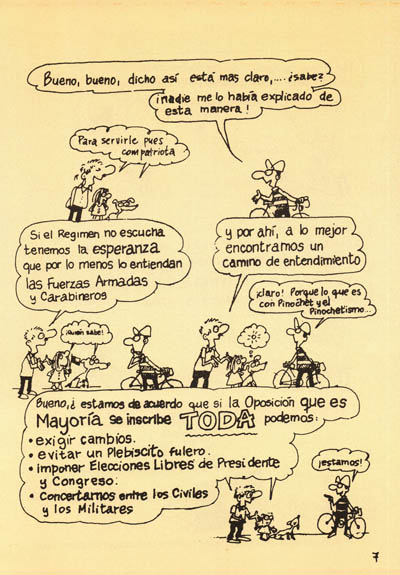 Bueno, bueno, dicho así está mas claro,....¿sabe?
¡nadie me lo había explicado de
esta manera!
Para servirle pues
compatriota
Si el Regimen no escucha
tenemos la esperanza
que por lo menos lo entiendan
las Fuerzas Armadas
y Carabineros
y por ahí, a lo mejor
encontramos un
camino de entendimiento
¡claro! Porque lo que es
con Pinochet y el
Pinochetismo...
¡Quién sabe!
Bueno,¿ estamos de acuerdo que si la Oposición que es
Mayoría se inscribe TODA podemos:
• exigir cambios.
• evitar un Plebiscito fulero.
• imponer Elecciones Libres de Presidente
y Congreso.
• Concertarnos entre los Civiles
y los Militares
¡estamos!
7